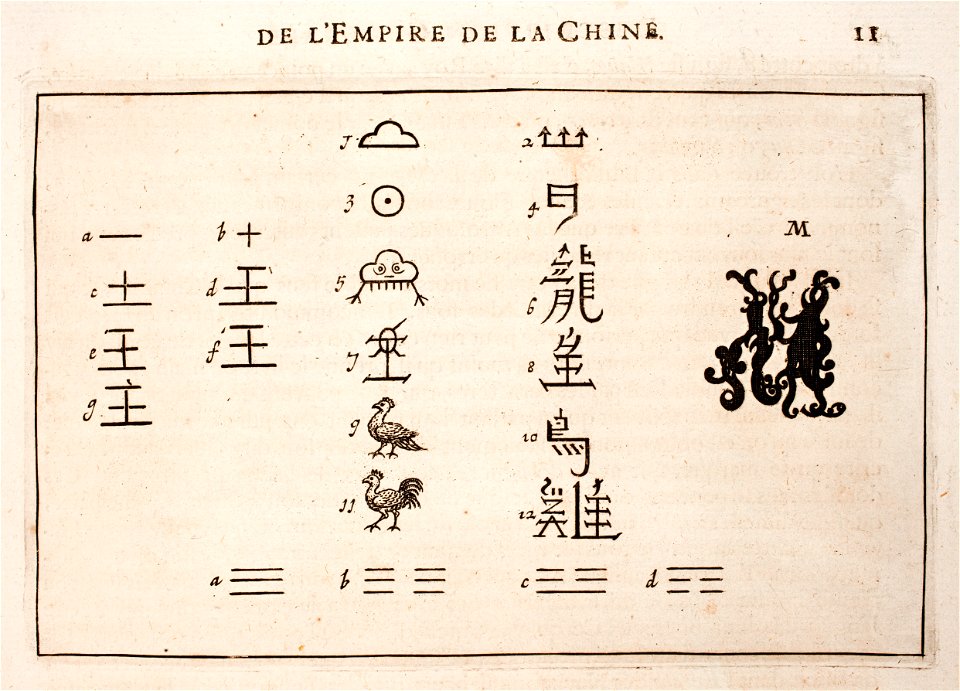 DE L'EMPIRE DE LA CHINE. 11
1 2
3 4
M
a 一 b 十
5
c 土 d 王
6 龍
e 王 f
7 8
g
9 10 鳥
11 12
a ☰ b c d